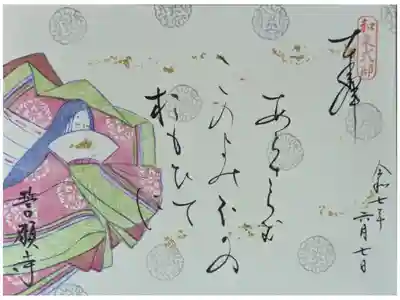 和泉式部
奉拝
令和七年六月七日
あらさらむ
このよのほかの
おもひて
に
誓願寺